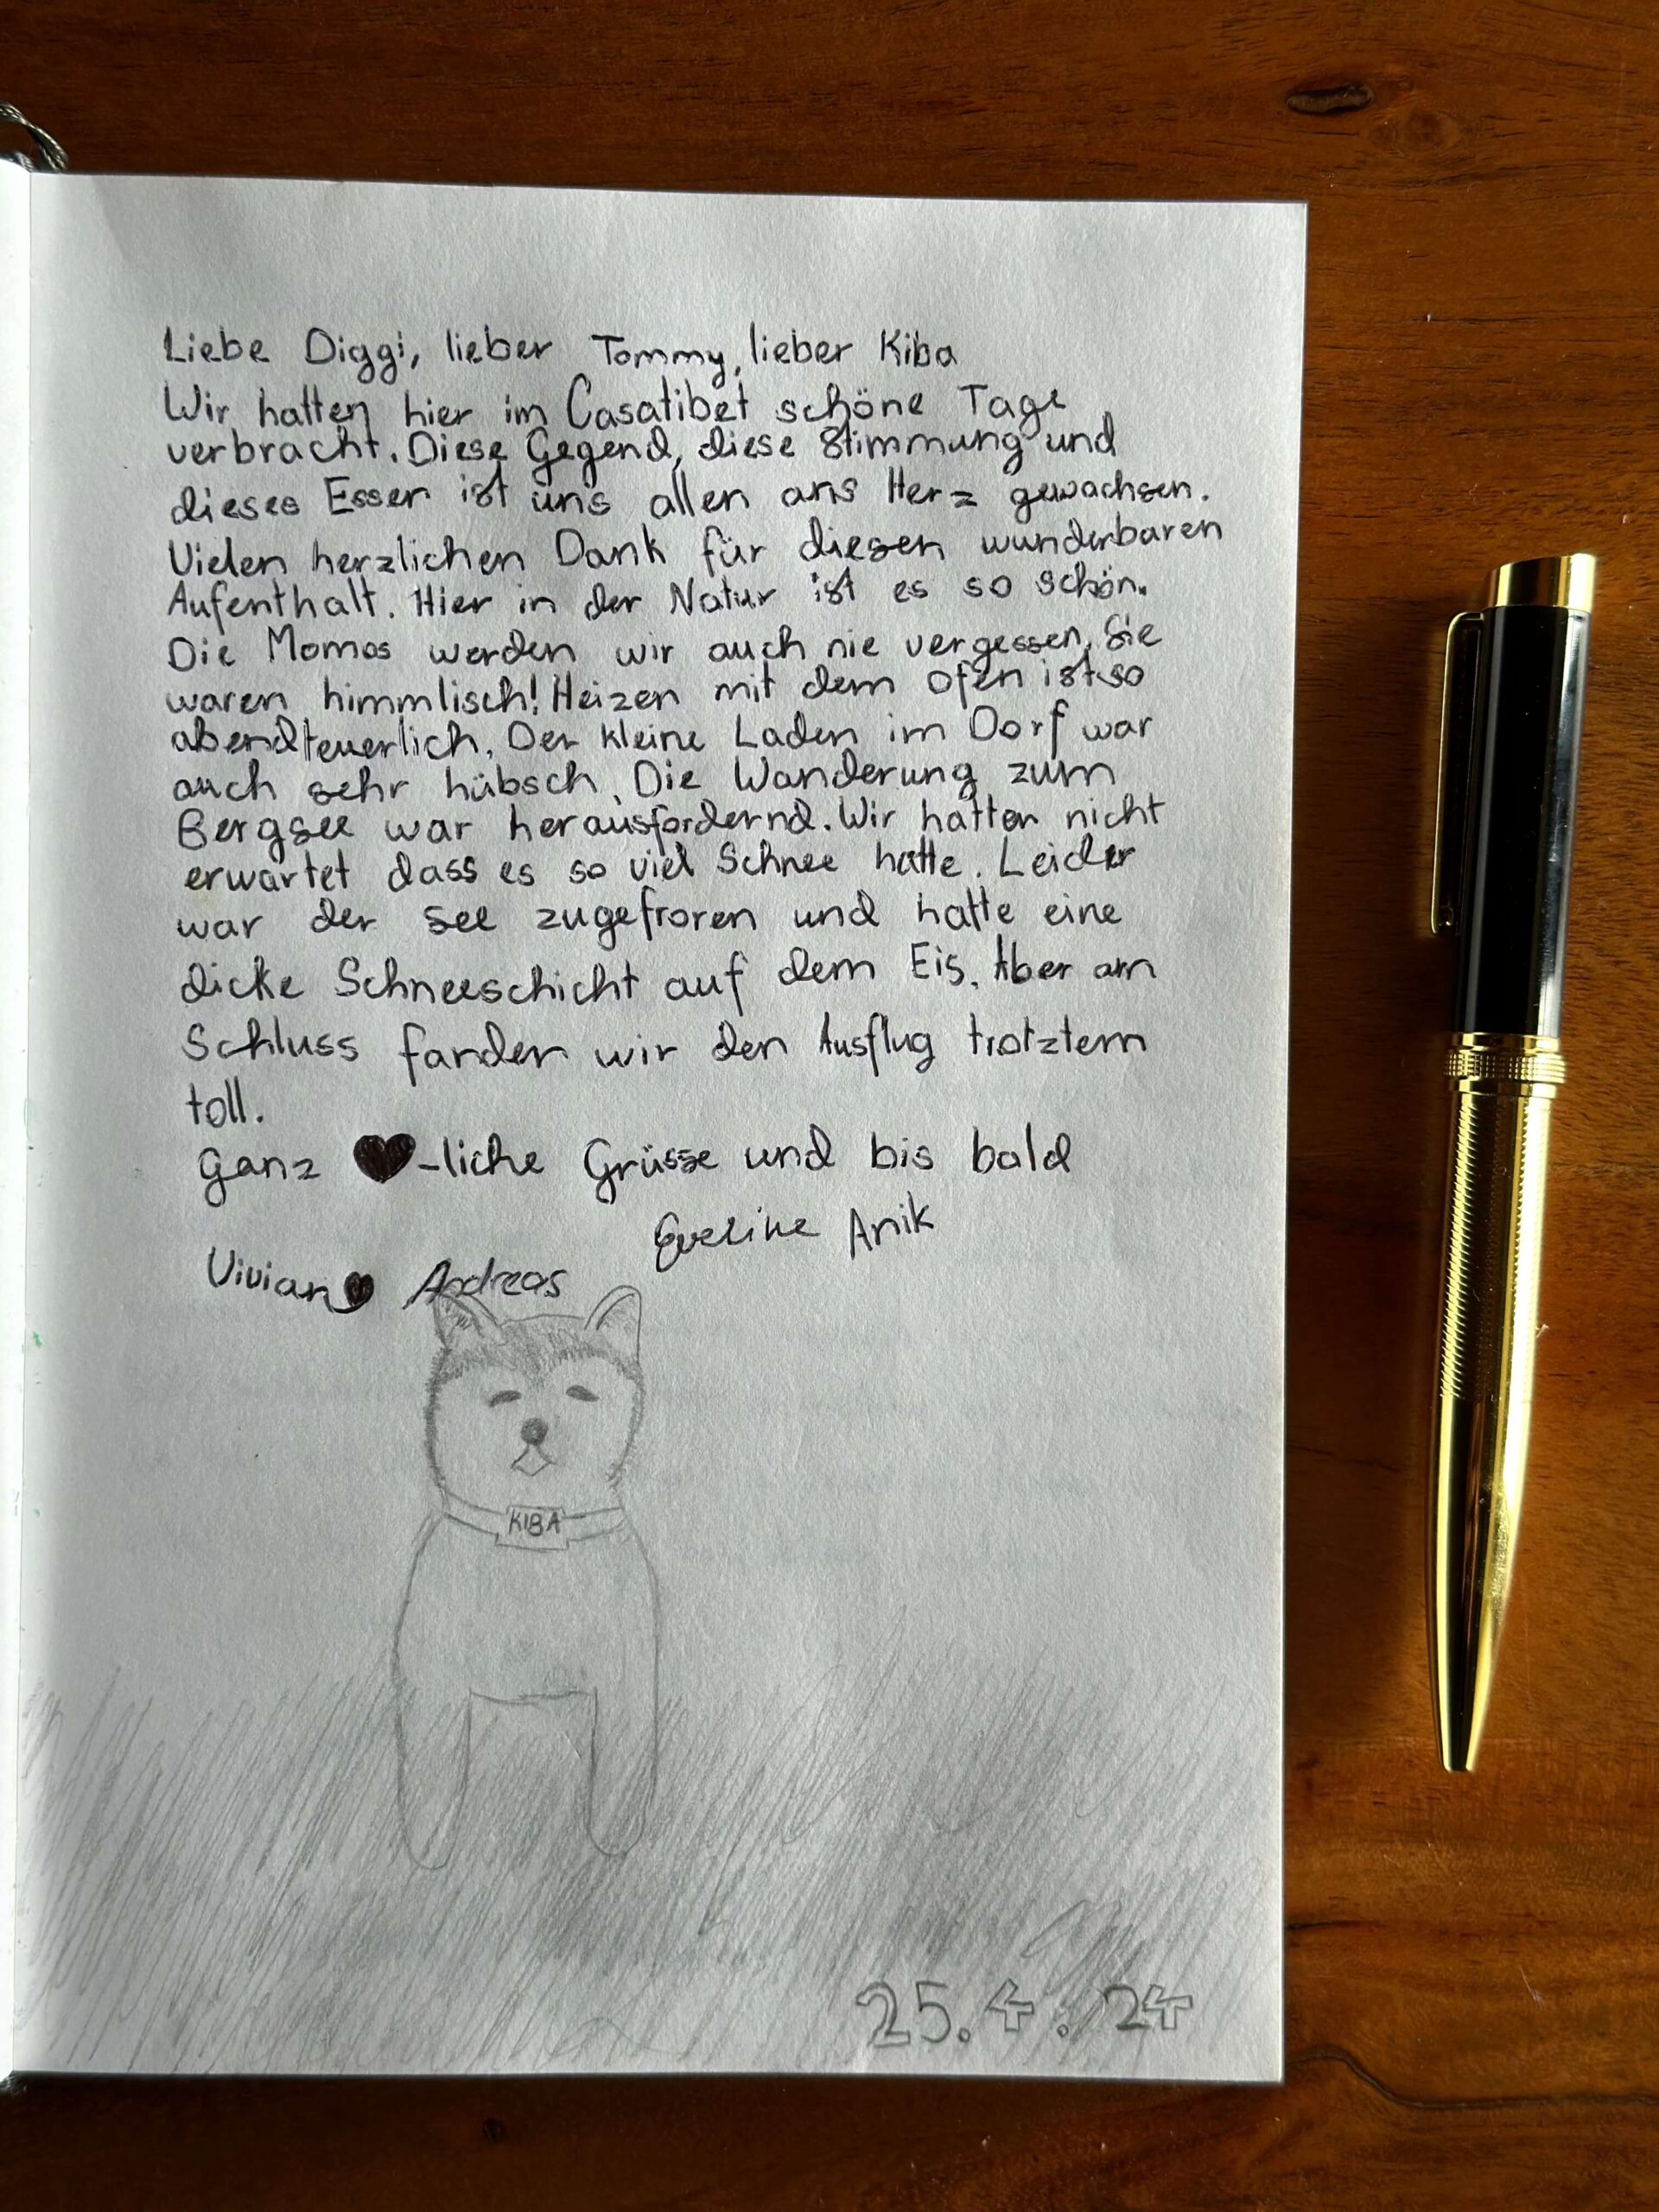 Liebe Diggi, lieber Tommy, lieber Kiba
Wir hatten hier im Casatibet schöne Tage
verbracht. Diese Gegend, diese Stimmung und
dieses Essen ist uns allen ans Herz gewachsen.
Vielen herzlichen Dank für diesen wunderbaren
Aufenthalt. Hier in der Natur ist es so schön.
Die Momos werden wir auch nie vergessen, Sie
waren himmlisch! Heizen mit dem Ofen ist so
abendteuerlich. Der kleine Laden im Dorf war
auch sehr hübsch. Die Wanderung zum
Bergsee war herausfordernd. Wir hatten nicht
erwartet dass es so viel Schnee hatte. Leider
war der See zugefroren und hatte eine
dicke Schneeschicht auf dem Eis. Aber am
Schluss fanden wir den Ausflug trotztem
toll.
Ganz ♥-liche Grüsse und bis bald
Eveline Anik
Vivian♥ Andreas
KIBA
25.4.24